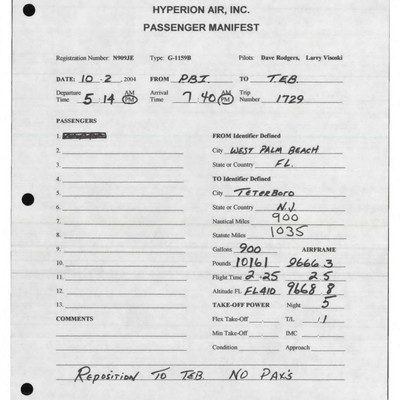 HYPERION AIR, INC.
PASSENGER MANIFEST
Registration Number: N909JE Type: G-1159B Pilots: Dave Rodgers, Larry Visoski
DATE: 10-2, 2004 FROM PBI TO TEB
Departure Time 5 14 AM PM Arrival Time 7 40 AM PM Trip Number 1729
PASSENGERS
1.
2.
3.
4.
5.
6.
7.
8.
9.
10.
11.
12.
13.
COMMENTS
FROM Identifier Defined
City WEST PALM BEACH
State or Country FL.
TO Identifier Defined
City TETERBORO
State or Country N.J.
Nautical Miles 900
Statute Miles 1035
Gallons 900 AIRFRAME
Pounds 10161 9666.3
Flight Time 2.25 2.5
Altitude FL FL410 9668 8
TAKE-OFF POWER Night 5
Flex Take-Off T/L 1
Min Take-Off IMC
Condition Approach
REPOSITION TO TEB. NO PAX'S